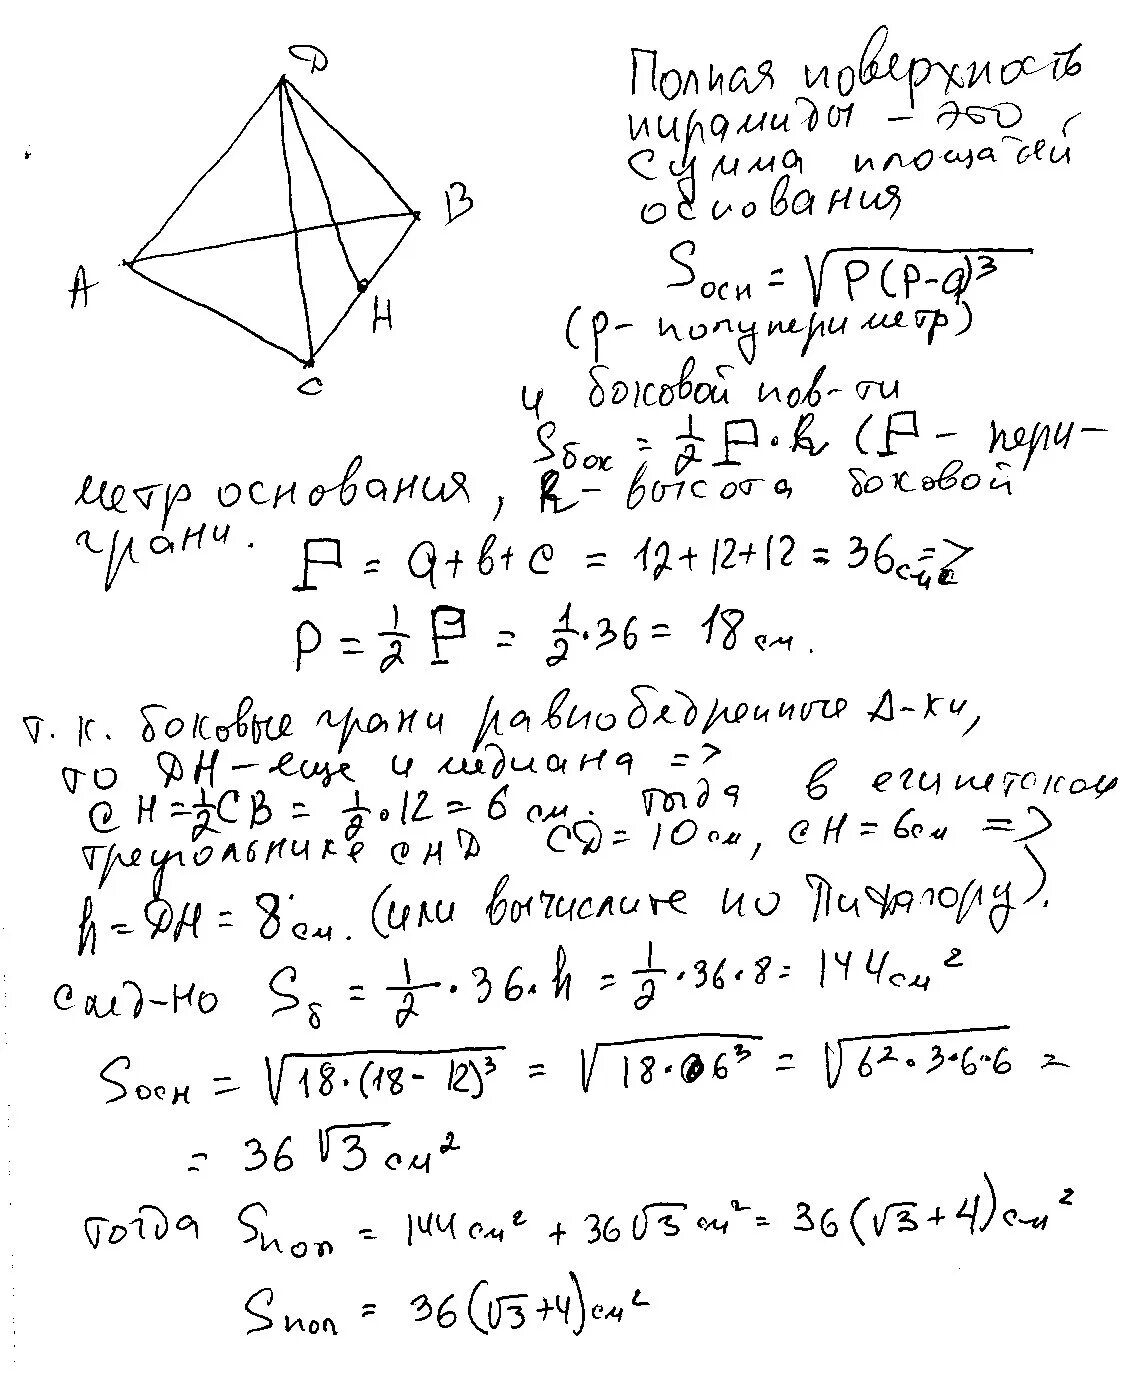 D
B
A
H
C
Полная поверхность
пирамиды – это
сумма площадей
основания
Sосн = √P(P-a)³
(p- полупериметр)
и боковой пов-ти
Sбок = 1/2 P·h (P – пери-
метр основания, h – высота боковой
грани.
P = a+b+c = 12+12+12 = 36см =>
P = 1/2 P = 1/2·36 = 18 см.
т. к. боковые грани равнобедренные Δ-ки,
то DH – еще и медиана =>
CH = 1/2 CB = 1/2·12 = 6 см. тогда в египетском
треугольнике CHD CD = 10 см, CH = 6см =>
h = DH = 8 см. (или вычислите по Пифагору).
след-но Sб = 1/2·36·h = 1/2·36·8 = 144 см²
Sосн = √18·(18-12)³ = √18·6³ = √6²·3·6·6 =
= 36√3 см²
тогда Sпол = 144 см² + 36√3 см² = 36(√3+4) см²
Sпол = 36(√3+4) см²